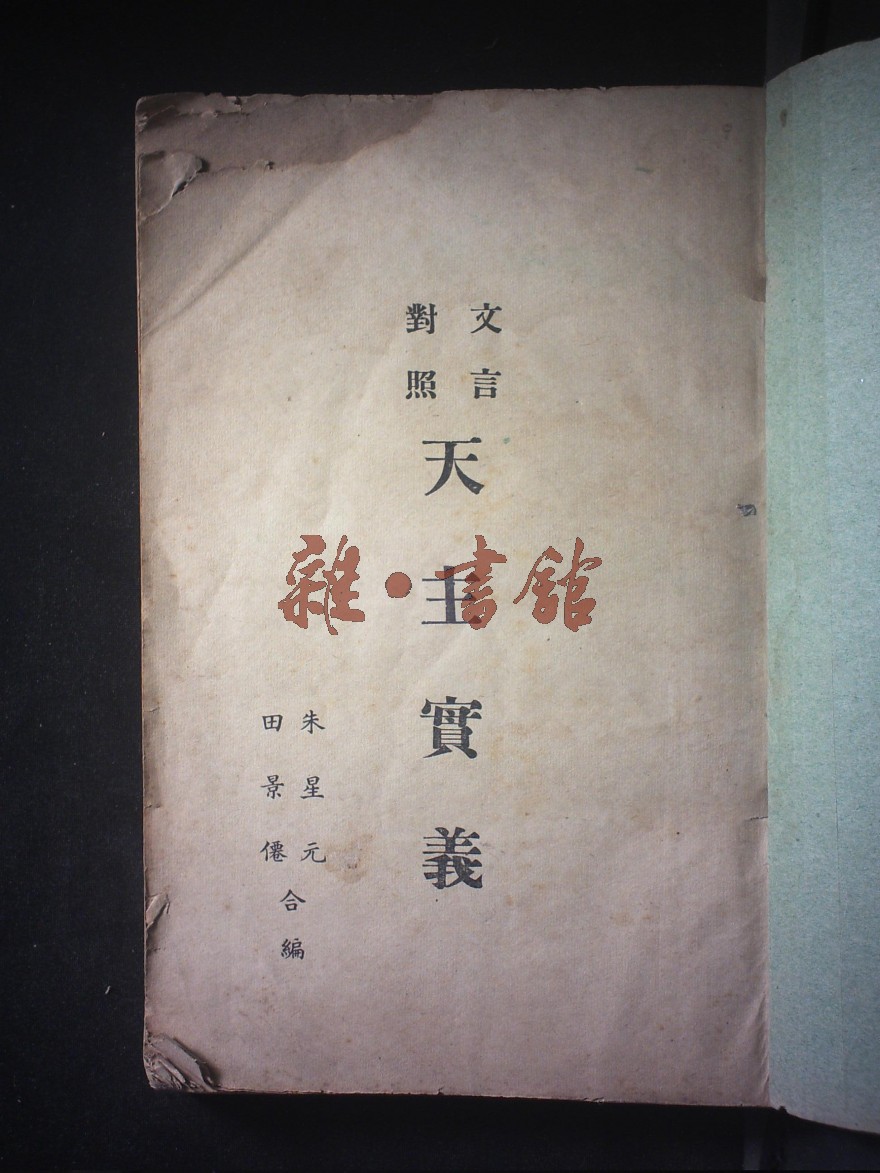 文言
對照
天主實義
朱星元
田景僊
合編
雜·書館